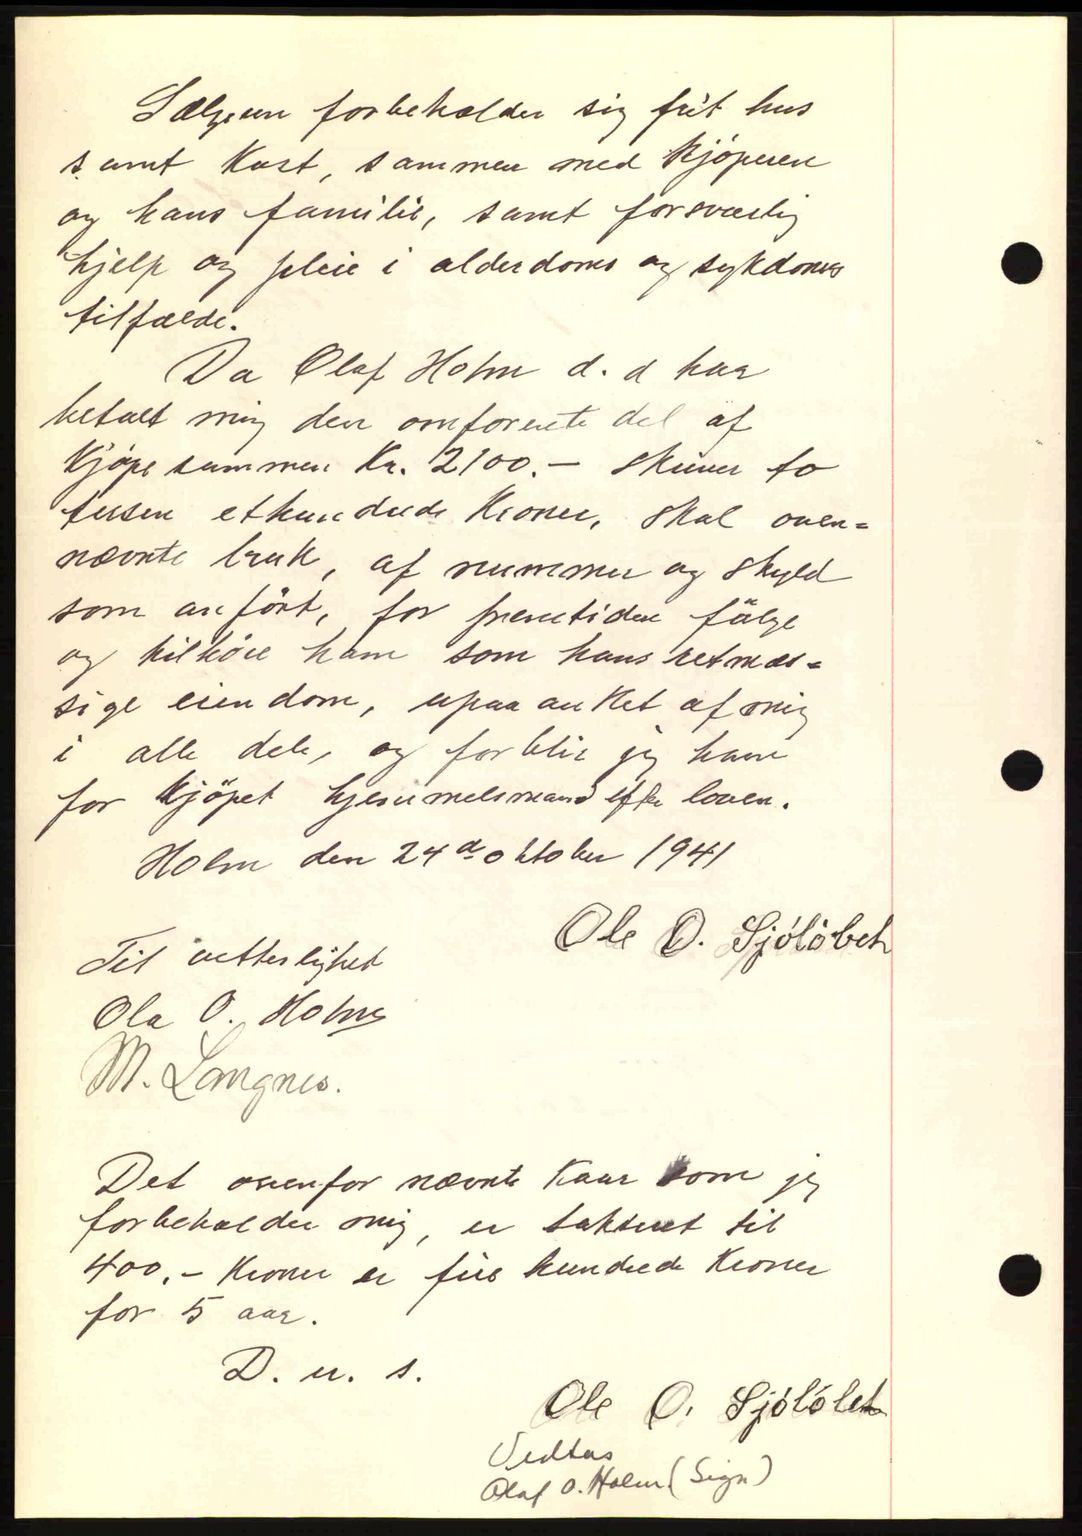 Sælgeren forbeholder sig frit hus
samt Kost, sammen med Kjöperen
og hans familie, samt forsvarlig
hjelp og pleie i alderdoms og sykdoms
tilfælde.
Da Olaf Holm d. d har
betalt mig den omforente del af
Kjöpesummen Kr. 2100.- skriver to
tusen ethundrede Kroner, skal oven=
nævnte bruk, af nummer og skyld
som anfört, for fremtiden fölge
og tilhöre ham som hans retmæs=
sige eiendom, upaaanket af mig
i alle dele, og forblir jeg ham
for Kjöpet hjemmelsmand efter loven.
Holm den 24d oktober 1941
Ole O. Sjölöbet
Til vetterlighet
Ola O. Holm
M. Langnes.
Det ovenfor nævnte Kaar som jeg
forbeholder mig, er taksert til
400.- Kroner er fire hundrede Kroner
for 5 aar.
D. u. s.
Ole O. Sjölöbet
Vedtas
Olaf O. Holm (Sign)